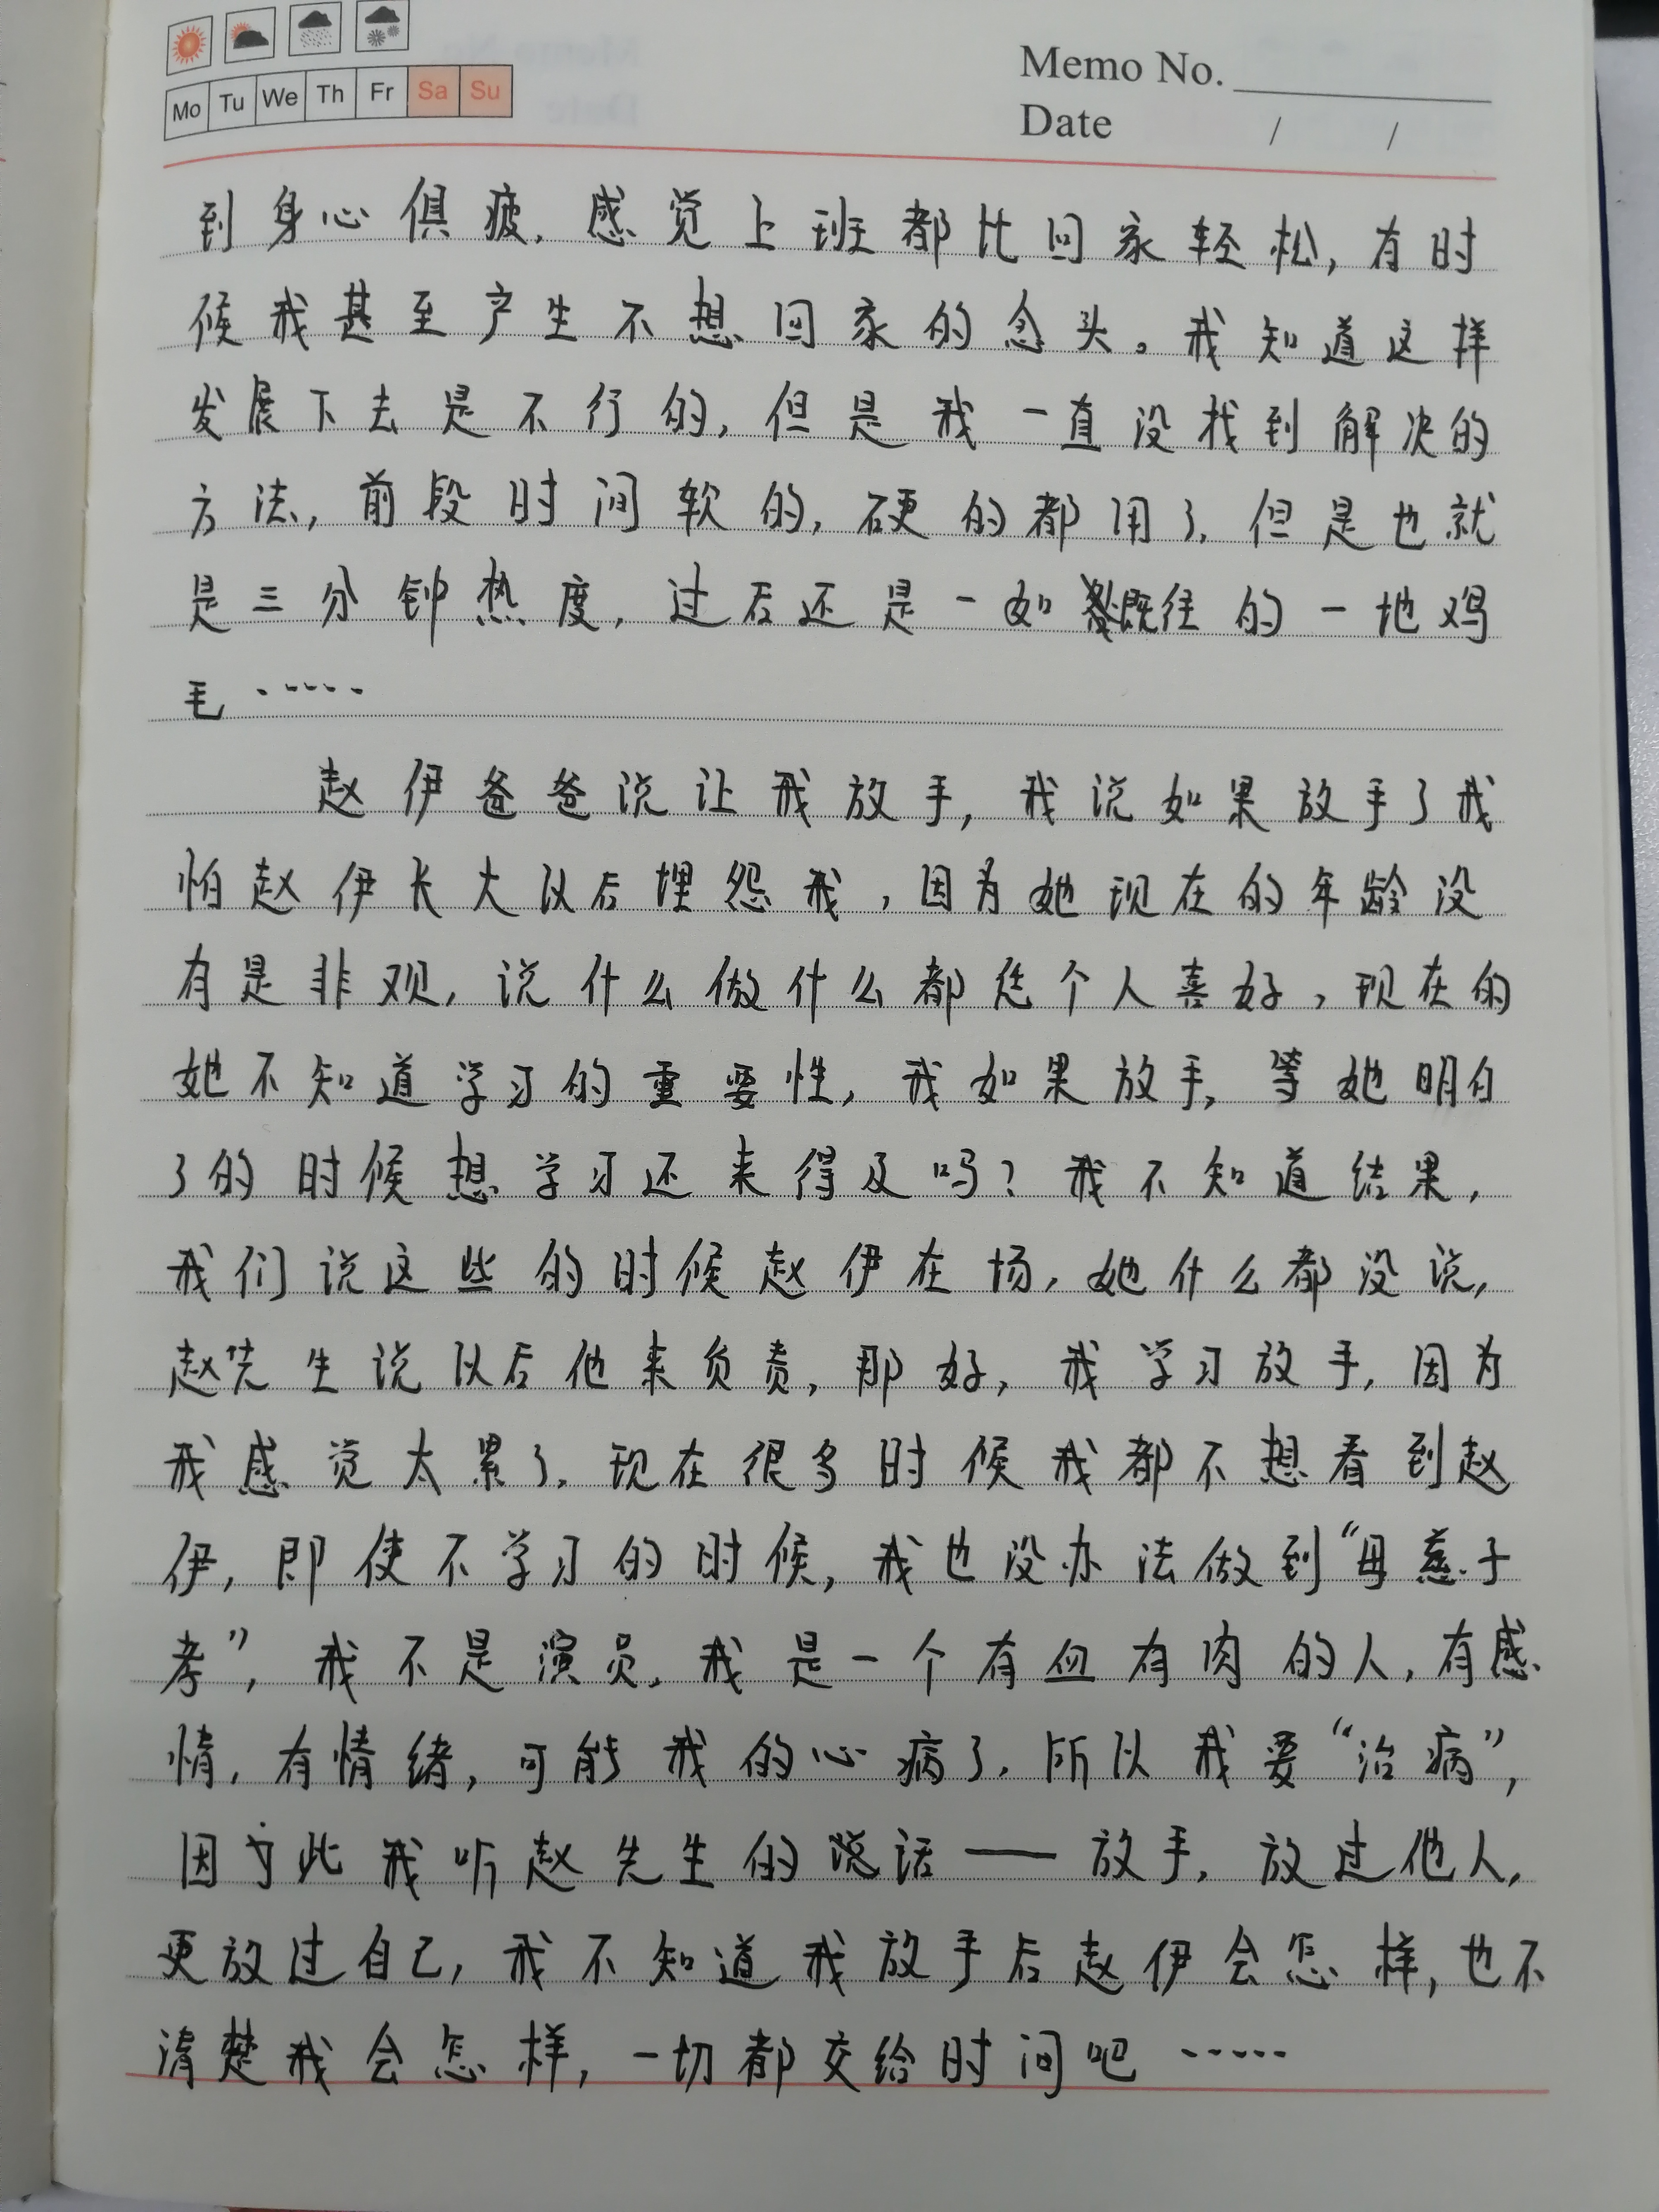 Mo Tu We Th Fr Sa Su
Memo No.
Date / /
到身心俱疲,感觉上班都比回家轻松,有时
候我甚至产生不想回家的念头。我知道这样
发展下去是不行的,但是我一直没找到解决的
方法,前段时间软的,硬的都用了,但是也就
是三分钟热度,过后还是一如既往的一地鸡
毛……
赵伊爸爸说让我放手,我说如果放手了我
怕赵伊长大以后埋怨我,因为她现在的年龄没
有是非观,说什么做什么都凭个人喜好,现在的
她不知道学习的重要性,我如果放手,等她明白
了的时候想学习还来得及吗?我不知道结果,
我们说这些的时候赵伊在场,她什么都没说,
赵先生说以后他来负责,那好,我学习放手,因为
我感觉太累了,现在很多时候我都不想看到赵
伊,即使不学习的时候,我也没办法做到“母慈子
孝”,我不是演员,我是一个有血有肉的人,有感
情,有情绪,可能我的心病了,所以我要“治病”,
因为此我听赵先生的说话——放手,放过他人,
更放过自己,我不知道我放手后赵伊会怎样,也不
清楚我会怎样,一切都交给时间吧……